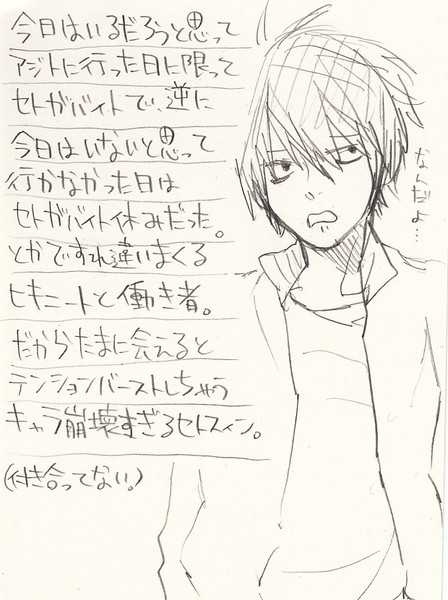 今日はいるだろうと思って
アジトに行った日に限って
セトがバイトで、逆に
今日はいないと思って
行かなかった日は
セトがバイト休みだった。
とかですれ違いまくる
ヒキニートと働き者。
だからたまに会えると
テンションバーストしちゃう
キャラ崩壊すぎるセトシン。
(付き合ってない。)
なんだよ…